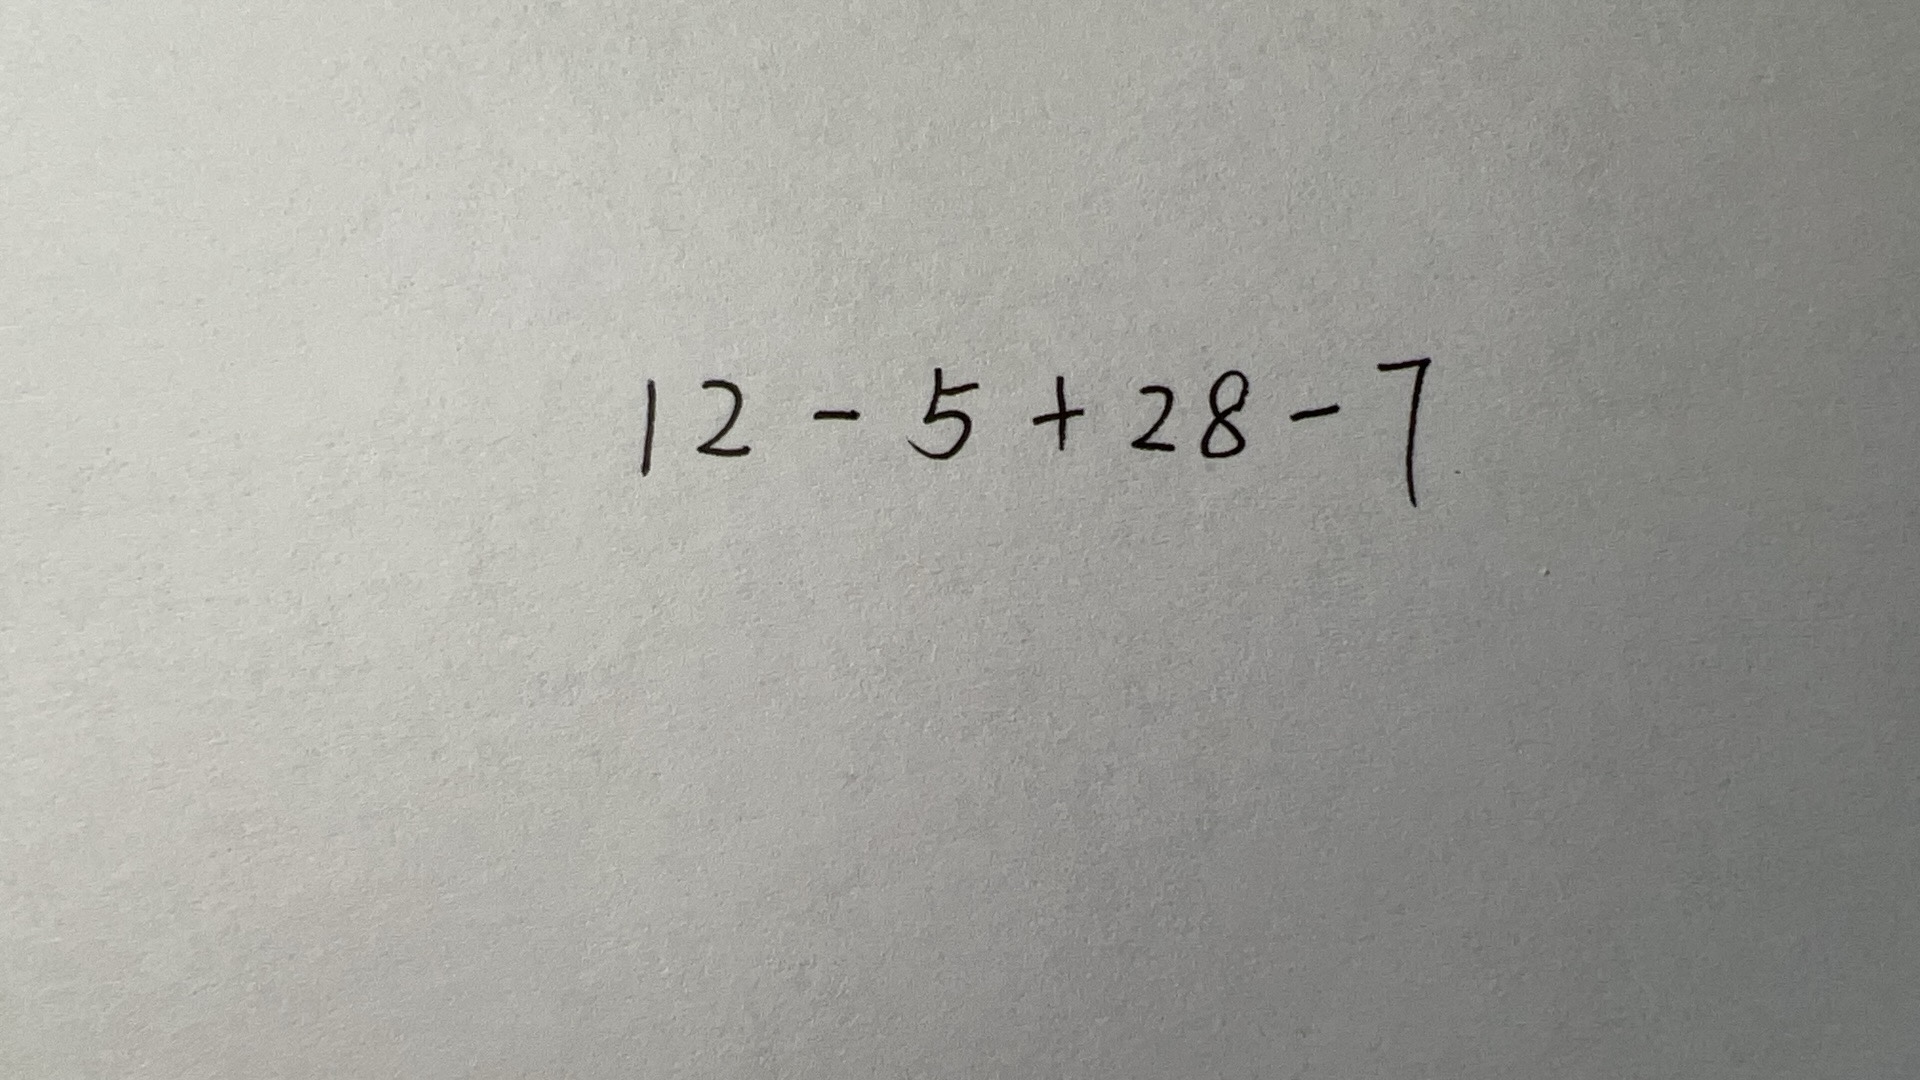 12 - 5 + 28 - 7